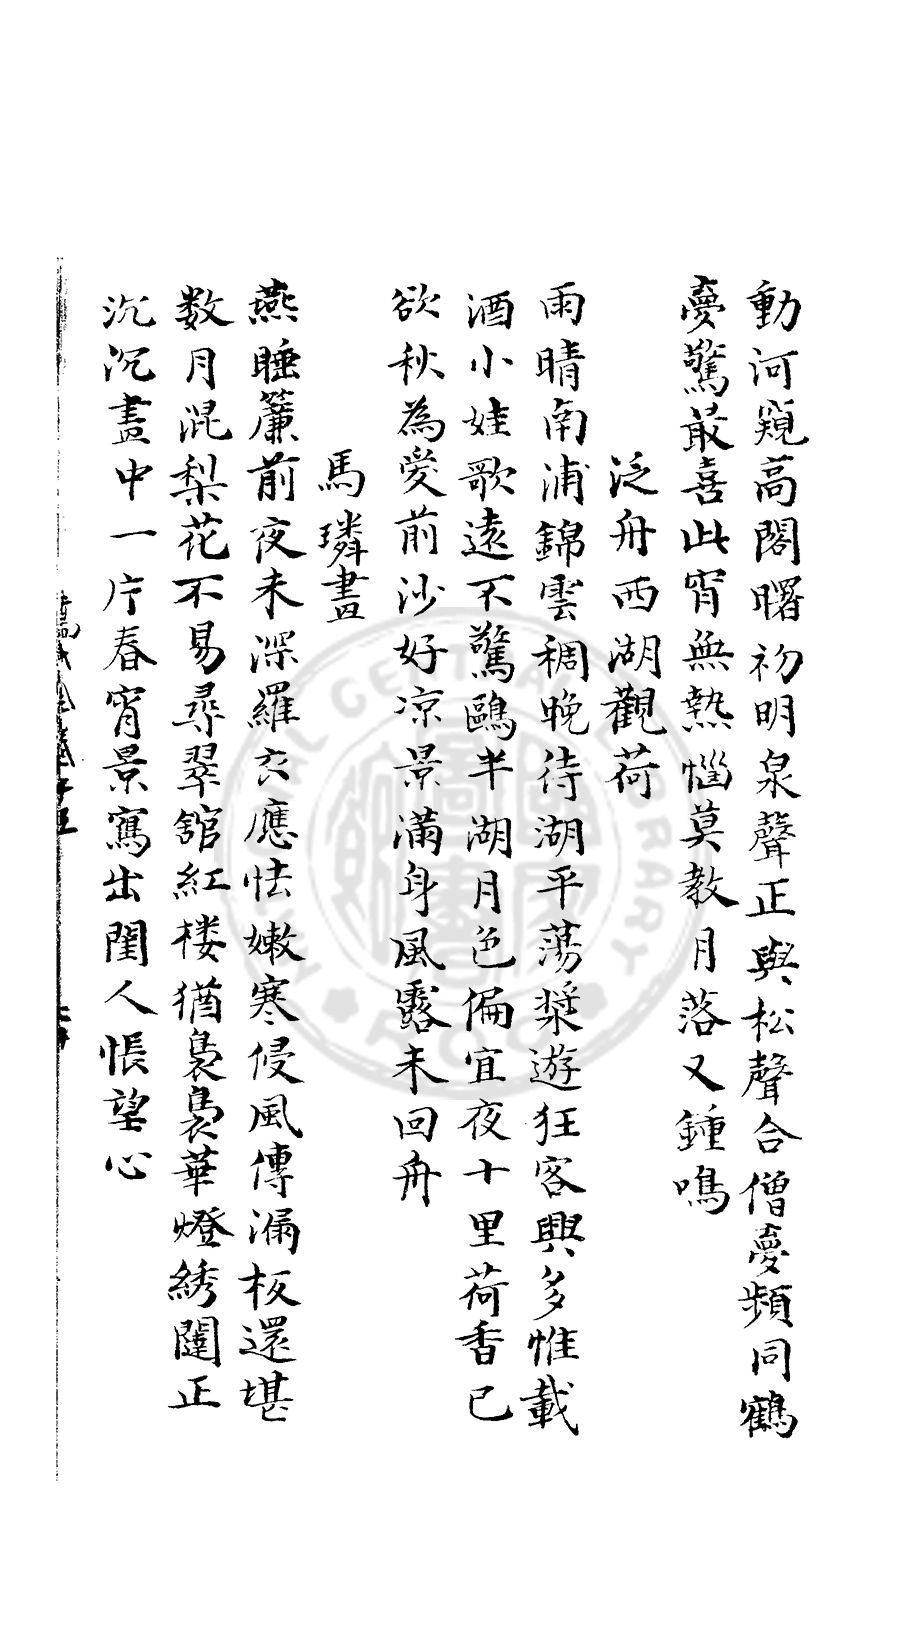 動河窺高閣曙初明泉聲正與松聲合僧夢頻同鶴
夢驚最喜此宵無熱惱莫教月落又鍾鳴
泛舟西湖觀荷
雨晴南浦錦雲稠晚待湖平蕩槳遊狂客興多惟載
酒小娃歌遠不驚鷗半湖月色偏宜夜十里荷香已
欲秋為愛前沙好凉景滿身風露未回舟
馬璘畫
燕睡簾前夜未深羅衣應怯嫩寒侵風傳漏板還堪
数月混梨花不易尋翠舘紅楼猶裊裊華燈綉闥正
沉沉畫中一片春宵景寫出閨人悵望心
NATIONAL CENTRAL LIBRARY
R.O.C
國家圖書館